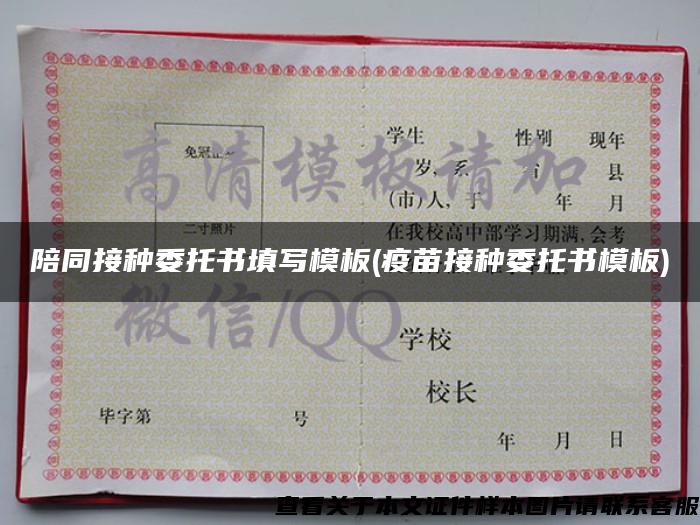 学生 性别 现年
岁,系 省 县
(市)人,于 年 月
在我校高中部学习期满,会考
免冠正
二寸照片
高清模板请加
陪同接种委托书填写模板(疫苗接种委托书模板)
微信/QQ
学校
校长
毕字第 号
年 月 日
查看关于本文证件样本图片请联系客服